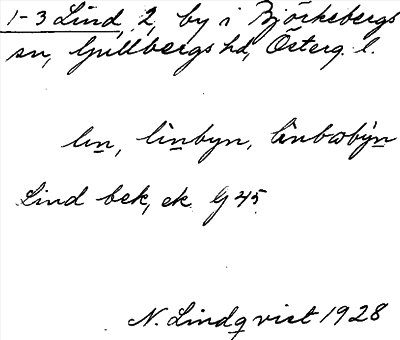 1-3 Lind, 2, by i Björkebergs
sn, Gullbergs hd, Österg. l.
lın, lìnbyn,
Lind bek, ek G 45
N. Lindqvist 1928